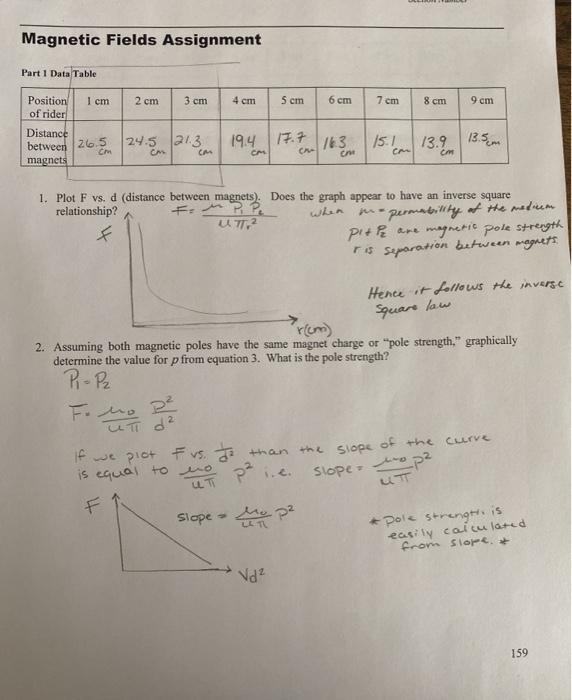 Magnetic Fields Assignment
Part 1 Data Table
Position of rider 1 cm 2 cm 3 cm 4 cm 5 cm 6 cm 7 cm 8 cm 9 cm
Distance between magnets 26.5 cm 24.5 cm 21.3 cm 19.4 cm 17.7 cm 16.3 cm 15.1 cm 13.9 cm 13.5 cm
1. Plot F vs. d (distance between magnets). Does the graph appear to have an inverse square
relationship? F = μ P₁ P₂ / 4π r² when m = permability of the medium
P1 + P₂ are magnetic pole strength
r is separation between magnets.
F
Hence it follows the inverse
square law
r(cm)
2. Assuming both magnetic poles have the same magnet charge or "pole strength," graphically
determine the value for p from equation 3. What is the pole strength?
P₁ = P₂
F = μo/4π P²/d²
If we plot F vs. 1/d² than the slope of the curve
is equal to μo/4π P² i.e. slope = μo/4π P²
F
slope = μo/4π P²
* Pole strength is
easily calculated
from slope. *
1/d²
159